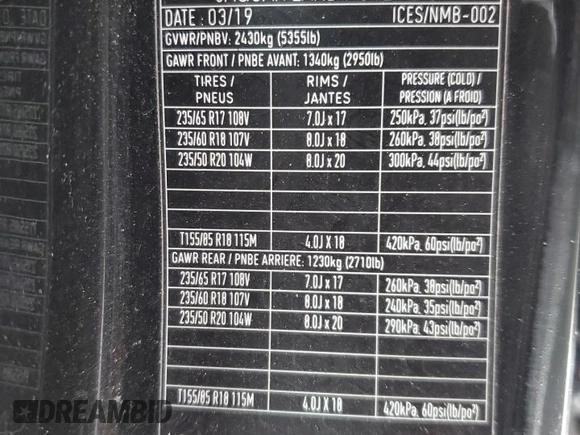 DATE : 03/19 ICES/NMB-002
GVWR/PNBV: 2430kg (5355lb)
GAWR FRONT / PNBE AVANT: 1340kg (2950lb)
TIRES / PNEUS RIMS / JANTES PRESSURE (COLD) / PRESSION (A FROID)
235/65 R17 108V 7.0J x 17 250kPa, 37psi(lb/po²)
235/60 R18 107V 8.0J x 18 260kPa, 38psi(lb/po²)
235/50 R20 104W 8.0J x 20 300kPa, 44psi(lb/po²)
T155/85 R18 115M 4.0J X 18 420kPa, 60psi(lb/po²)
GAWR REAR / PNBE ARRIERE: 1230kg (2710lb)
235/65 R17 108V 7.0J x 17 260kPa, 38psi(lb/po²)
235/60 R18 107V 8.0J x 18 240kPa, 35psi(lb/po²)
235/50 R20 104W 8.0J x 20 290kPa, 43psi(lb/po²)
T155/85 R18 115M 4.0J X 18 420kPa, 60psi(lb/po²)
DREAMBID